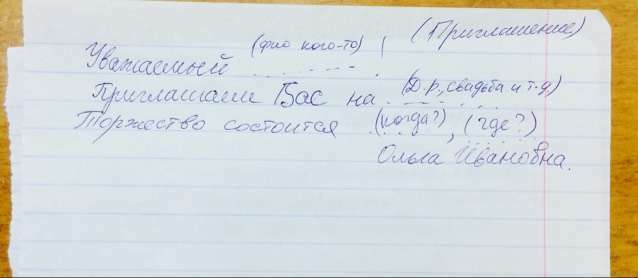 (Приглашение)
Уважаемый (фио кого-то) !
Приглашаем Вас на (Д.р., свадьба и т.д)
Торжество состоится (когда?), (где?)
Ольга Ивановна.